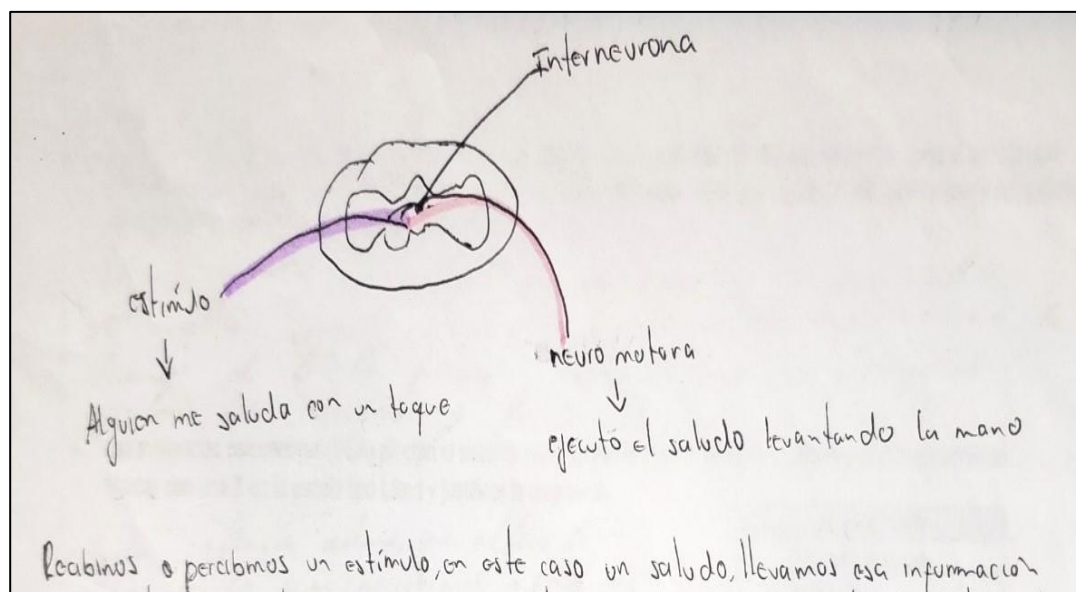 Interneurona
estímulo
neuro motora
Alguien me saluda con un toque
ejecuto el saludo levantando la mano
Recibimos o percibimos un estímulo, en este caso un saludo, llevamos esa información